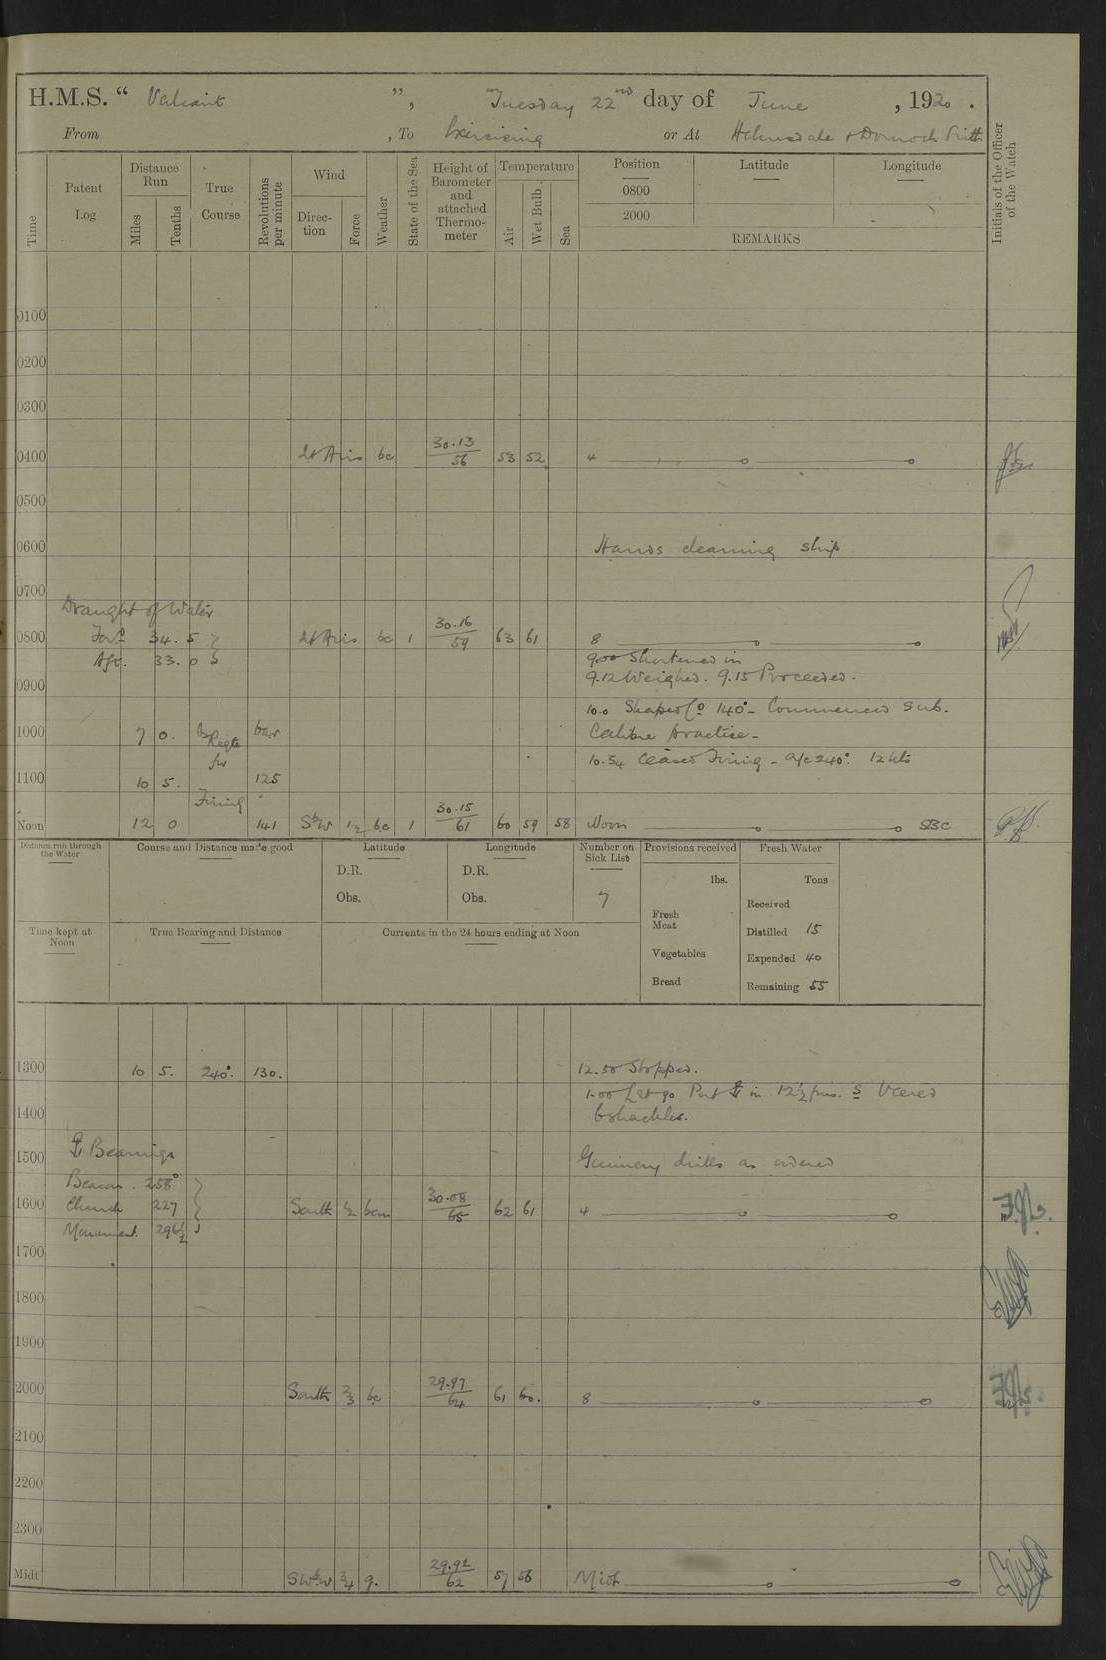 H.M.S. “ Valiant ”, Tuesday 22nd day of June , 1920 .
From , To Exercising or At Helmsdale & Dornoch Firth
Time
Patent Log
Distance Run
Miles
Tenths
True Course
Revolutions per minute
Wind
Direc-tion
Force
Weather
State of the Sea
Height of Barometer and attached Thermo-meter
Temperature
Air
Wet Bulb
Sea
Position
Latitude
Longitude
0800
2000
REMARKS
Initials of the Officer of the Watch
0100
0200
0300
0400 Lt Airs bc 30.13/56 53 52 4
0500
0600 Hands cleaning ship
0700
Draught of Water
0800 For'd 34. 5 Lt Airs bc 1 30.16/59 63 61 8
Aft. 33. 0
9.00 Shortened in
0900 9.12 Weighed. 9.15 Proceeded.
10.0 Shaped Co 140° - Commenced Sub.
1000 7 0. As Reqte for Firing Calibre Practice -
10.54 Ceased Firing - a/c 240° 12 kts
1100 10 5. 125
Noon 12 0 141 SbW 1/2 bc 1 30.15/61 60 59 58 Noon SBC
Distance run through the Water
Course and Distance made good
Latitude
D.R.
Obs.
Longitude
D.R.
Obs.
Number on Sick List
7
Provisions received
lbs.
Fresh Meat
Vegetables
Bread
Fresh Water
Tons
Received
Distilled 15
Expended 40
Remaining 55
Time kept at Noon
True Bearing and Distance
Currents in the 24 hours ending at Noon
1300 10 5. 240° 130. 12.50 Stopped.
1.00 Let go Port in 12½ fms. Veered
1400 6 shackles.
Bearings
1500 Gunnery drills as ordered
Beacon . 258°
1600 Church 227 South ½ bcm 30.08/65 62 61 4
Monument. 296½
1700
1800
1900
2000 South 2/3 bc 29.97/64 61 60. 8
2100
2200
2300
Midt SWbW 3/4 g. 29.92/62 57 56 Midt